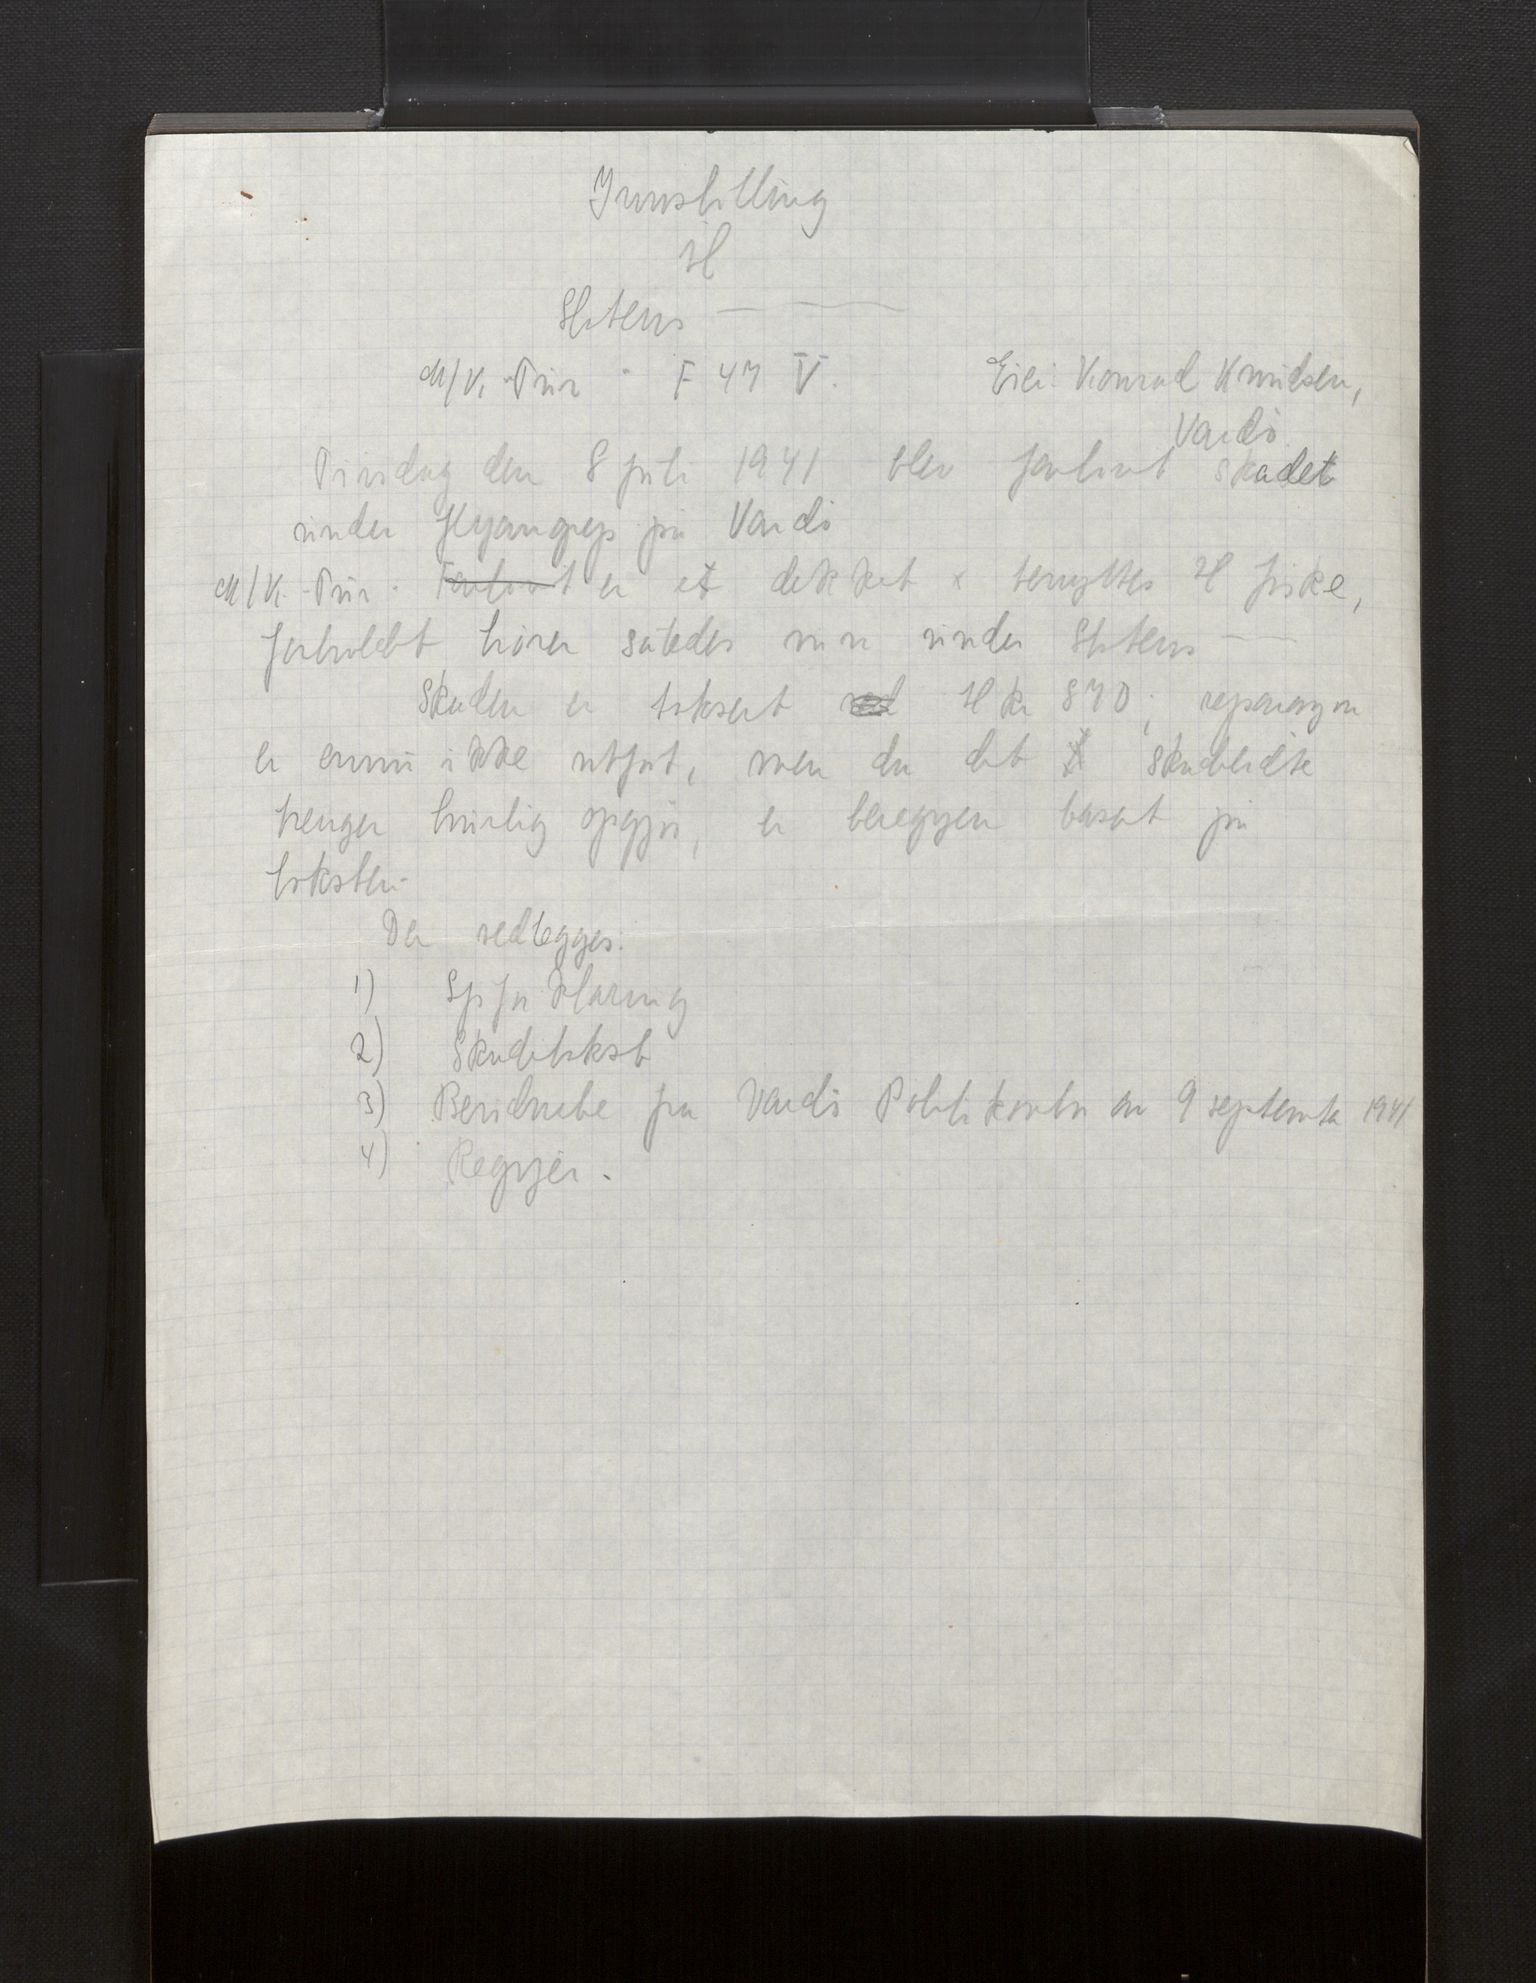 Innstilling
til
Statens
M/K "Trur" F 47 V. Eier Konrad Knudsen,
Vardö
Tirsdag den 8 juli 1941 blev fartöiet skadet
under flyangrep på Vardö
M/K "Trur" Fartöiet er et dekket x benyttes til fiske,
forholdet hörer således inn under Statens
Skaden er taksert til kr 870; reparasjon
er ennu ikke utfört, men da det skadelidte
trenger hurtig opgjör, er beregnen basert på
taksten.
Der vedlegges:
1) Sjöforklaring
2) Skadetakst
3) Beridnelse fra Vardö Politikontor av 9 september 1941
4) Regnjen.